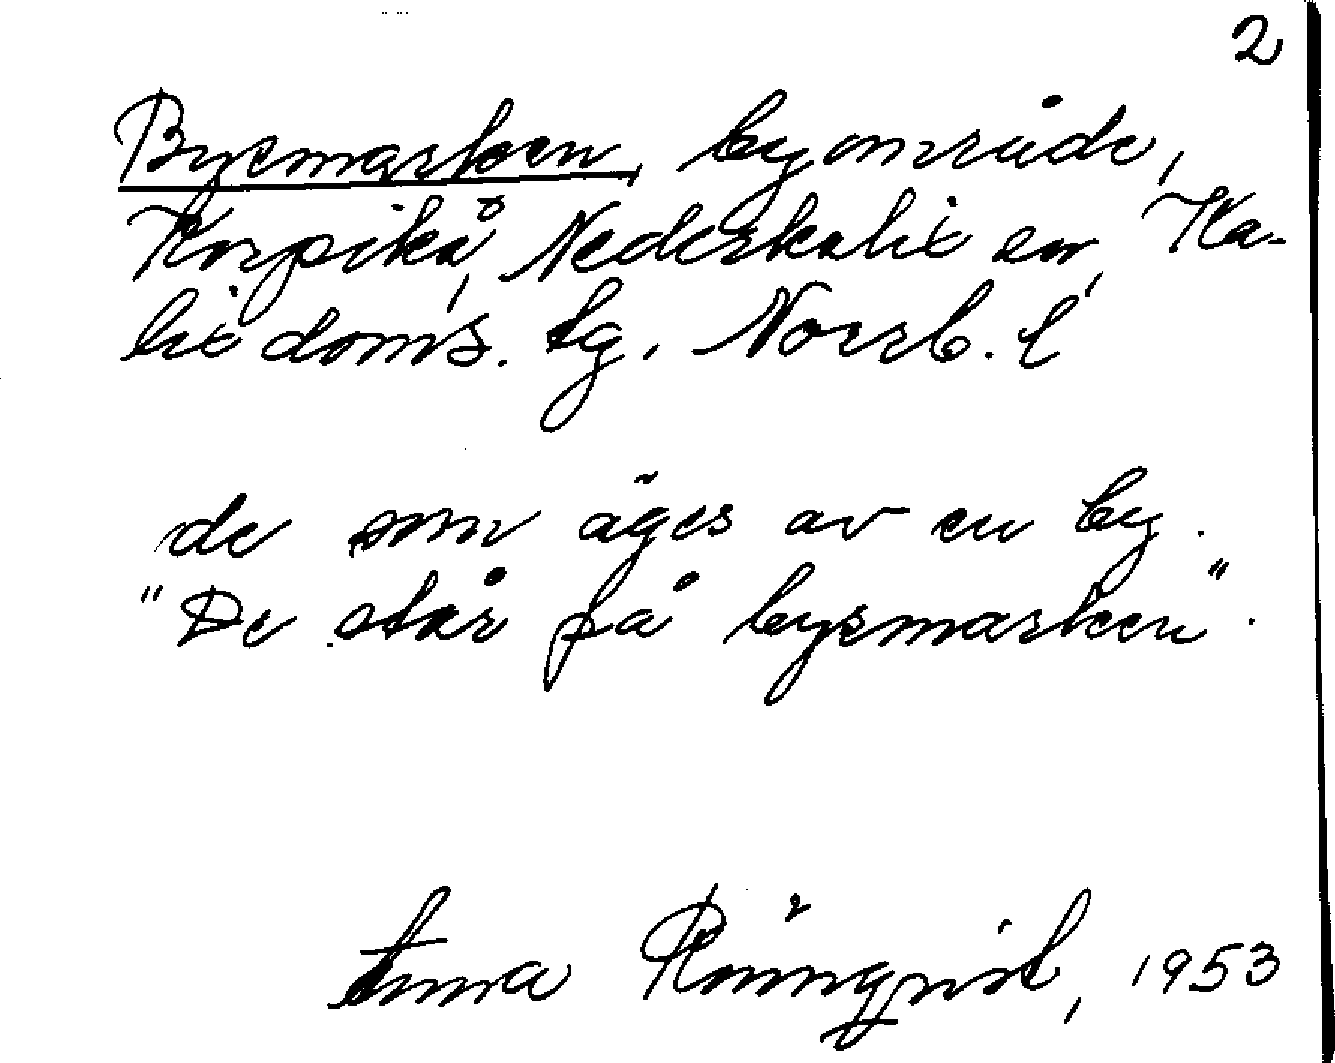 2
Bysmarken, byområde,
Korpikå, Nederkalix sn, Ka-
lix doms. tg. Norrb. l
de som äges av en by.
"De står på bysmarken".
Anna Rönnqvist, 1953